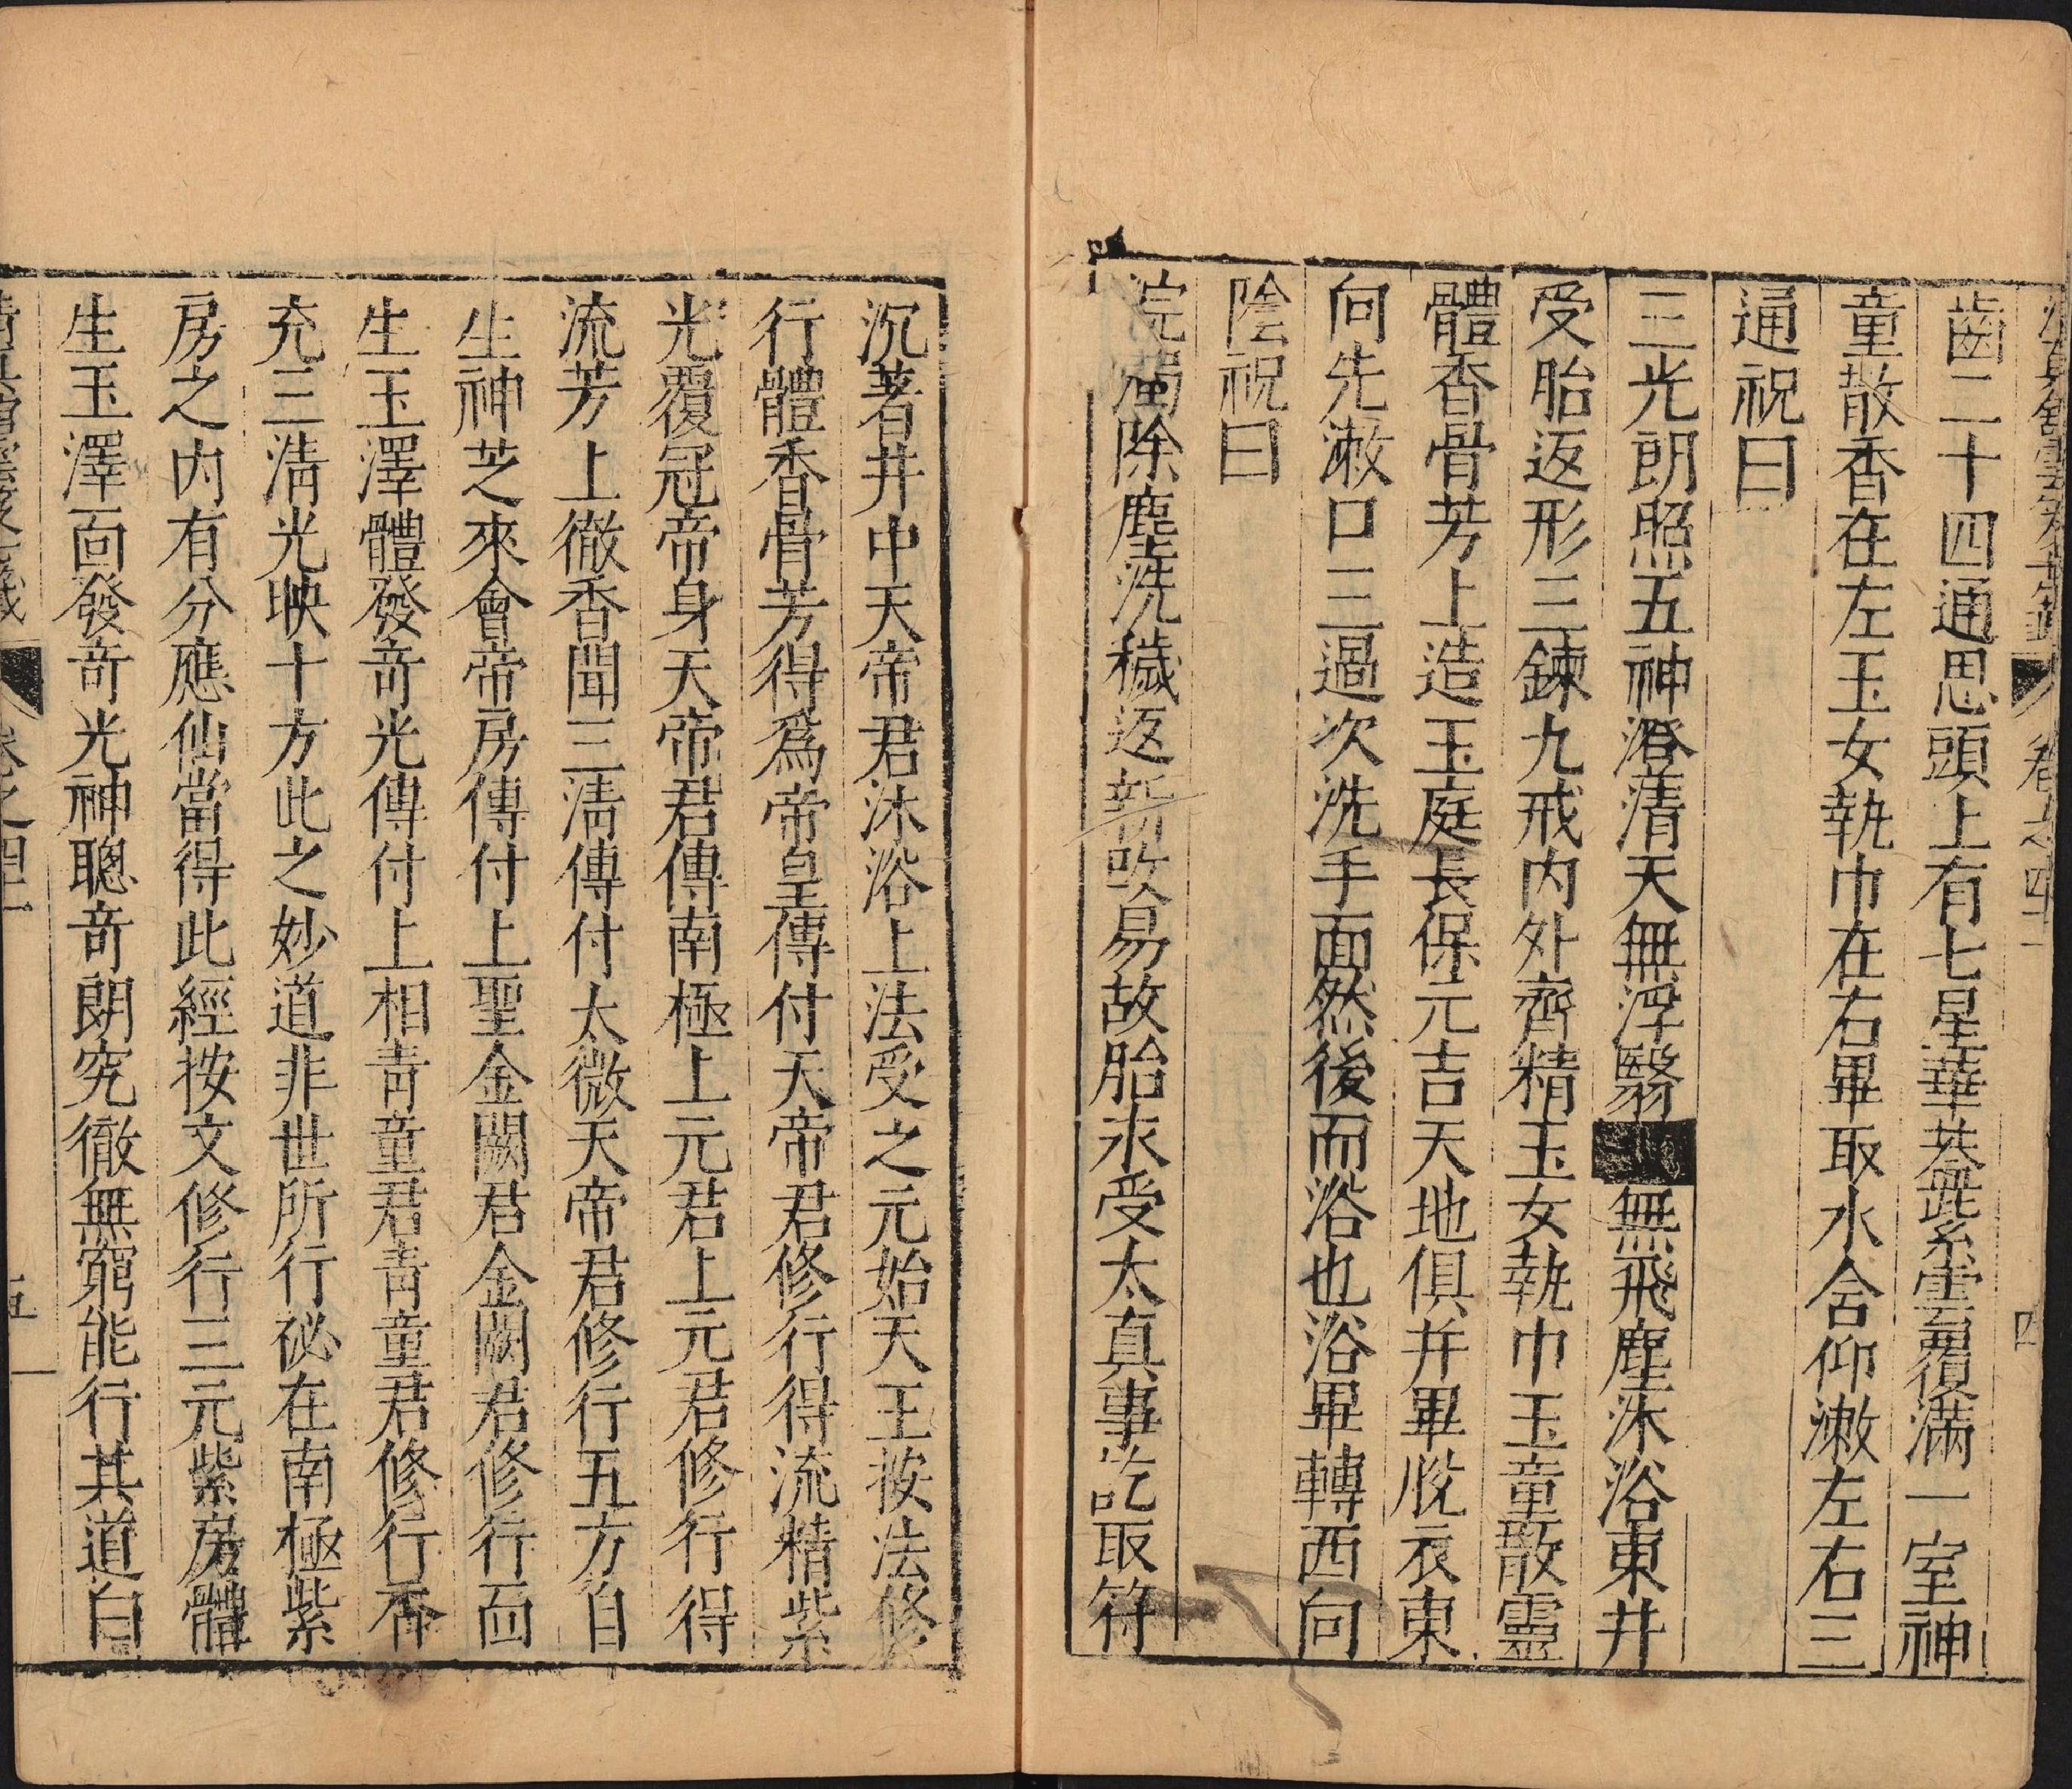 清真館雲笈七籤 卷之四十一 四
齒二十四通思頭上有七星華葢紫雲覆滿一室神
童散香在左玉女執巾在右畢取水含仰漱左右三
通祝曰
三光朗照五神澄清天無浮翳無飛塵沐浴東井
受胎返形三鍊九戒内外齊精玉女執巾玉童散靈
體香骨芳上造玉庭長保元吉天地俱并畢脫衣東
向先漱口三過次洗手面然後而浴也浴畢轉西向
陰祝曰
浣濁除塵洗穢返新改易故胎永受太真事訖取符
沉著井中天帝君沐浴上法受之元始天王按法修
行體香骨芳得爲帝皇傳付天帝君修行得流精紫
光覆冠帝身天帝君傳南極上元君上元君修行得
流芳上徹香聞三清傳付太微天帝君修行五方自
生神芝來會帝房傳付上聖金闕君金闕君修行面
生玉澤體發奇光傳付上相青童君青童君修行香
充三清光映十方此之妙道非世所行祕在南極紫
房之内有分應仙當得此經按文修行三元紫房體
生玉澤面發奇光神聰奇朗究徹無窮能行其道自
清真館雲笈七籤 卷之四十一 五